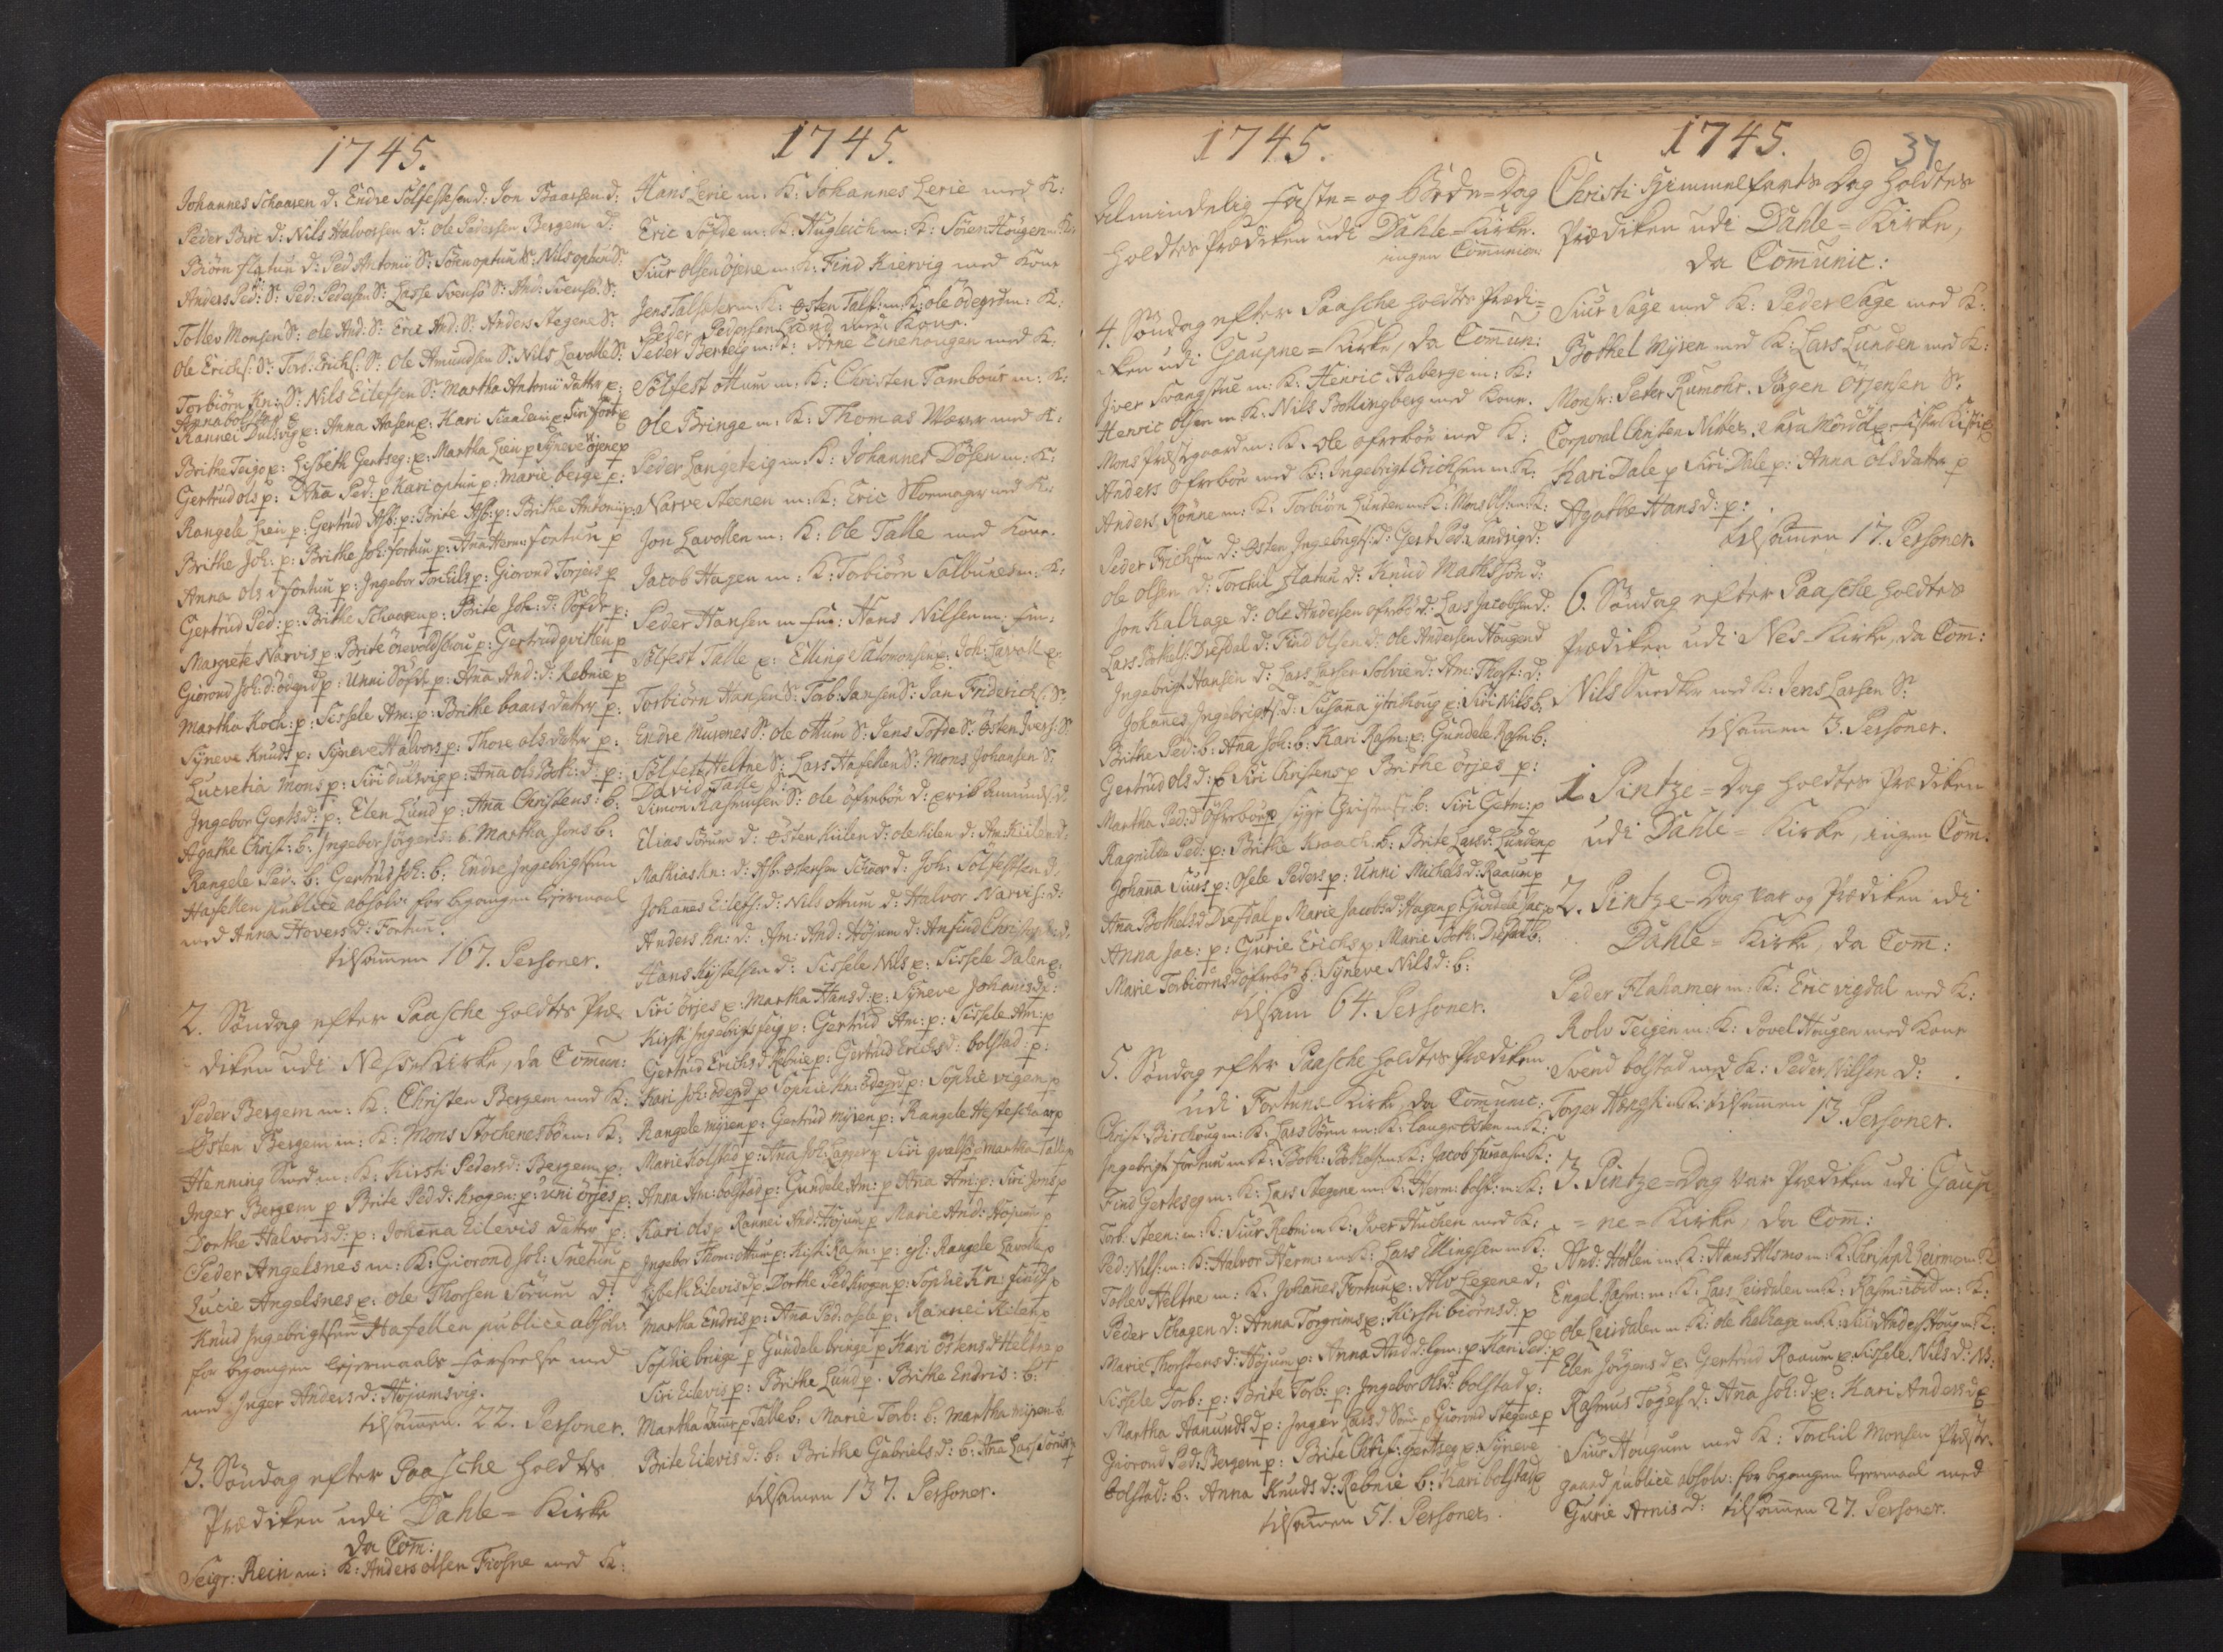 1745.
Johannes Schaaren d: Endre Sölfestesen d: Jon Baarsen d:
Peder Birc d: Nils Halvorsen d: Ole Pedersen Bergem d:
Biörn flatun d: Ped Antonii S: Sören optun S: Nils optun S:
Anders Ped: S: Ped: Pedersen S: Lasse Svensö S: And: Svensö S:
Tollev Monsen S: Ole And: S: Eric And: S: Anders Stegene S:
Ole Erichs: S: Torb: Erichs: S: Ole Amundsen S: Nils Lavolle S:
Torbiörn Kn: S: Nils Eilefsen S: Martha Antonii datter p:
Anna bolstad p
Rannei Dulsvig p: Anna Hasen p: Kari
Brithe Teige p: Lisbeth Gertseg: p: Martha Lien p Syneve öjene p
Gertrud ols p: Anna Ped: p Kari optun p: Marie berge p:
Rangele Lien p: Gertrud Asb: p: Brite Asb: p: Brithe Antonii p:
Brithe Joh: p: Brithe Joh: fortun p: Anna Herm: fortun p
Anna ols d fortun p: Ingebor Torchils p: Giorond Torjeis p
Gertrud Ped: p: Brithe Schaaren p: Brite Joh: d: Söfde p:
Margrete Narvis p: Brite p: Gertrud qvitten p
Giorond Joh: d: ödegrd p: Unni Söfde p: Anna And: d: Rebnie p
Martha Koch: p: Sissele Am: p: Brithe baars datter p:
Syneve Knuds p: Syneve Halvors p: Thore ols datter p:
Lucretia Mons p: Siri dulsvig p: Anna ols Both: d p:
Ingebor Gerts d: p: Elen Lund p: Anna Christens: b:
Agathe Christ: b: Ingebor Jörgens: b: Martha Jons b:
Rangele Ped: b: Gertrud Joh: b: Endre Ingebrigtsen
Hafellen publice absolv: for begangen Leiermaal
med Anna Hovers d: Fortun.
tilsammen 167. Personer.
2. Søndag efter Paasche holdtes Præ-
diken udi Nes Kirke, da Commun:
Peder Bergem m: K: Christen Bergem med K:
Østen Bergem m: K: Mons Stochenesbö m: K:
Henning Smed m: K: Kirsti Peders d: Bergem p:
Inger Bergem p Brite Ped d: krogen: p: Uni örjes p:
Dorthe Halvors d: p: Johanna Eilevis datter p:
Peder Angelsnes m: K: Giorond Joh: Snetun p
Lucie Angelsnes p: Ole Thorsen Sörum d:
Knud Ingebrigtsen Hafellen publice absolv:
for begangen Leiermaals forseelse med
med Inger Anders d: Højumsvig.
tilsammen. 22. Personer.
3. Søndag efter Paasche holdtes
Prædiken udi Dahle = Kirke
da Com:
Seigr: Rein m: K: Anders olsen Fiosne med K:
1745.
Hans Lerie m: K: Johannes Lerie med K:
Eric Söfde m: K: Hugleich m: K: Sören Hougen m: K:
Siur olsen öjene m: K: Find Kiervig med Kone
Jens Talsæter m: K: Østen Talle: m: K: Ole ödegrd m: K:
Peder Pedersen Lund med Kone.
Peder Berteig m: K: Arne Einehougen med K:
Sölfest ottum m: K: Christen Tambour m: K:
Ole Bringe m: K: Thomas Wærr med K:
Peder Langeteig m: K: Johannes Dösen m: K:
Narve Steenen m: K: Eric Skomager med K:
Jon Lavollen m: K: Ole Talle med Kone.
Jacob Hagen m: K: Torbiörn Salbunes m: K:
Peder Hansen m: Hans Nilsen m:
Sölfest Talle p: Elling Salomonsen p: Joh: Lavoll p:
Torbiörn Hansen S: Torb: Jansen S: Jan Friderichs: S:
Endre Murenes S: ole ottum S: Jens Tofde S: Østen Ivers: S:
Sölfest Heltne S: Lars Hafellen S: Mons Johansen S:
David Talle S:
Simon Rasmusen S: ole öfrebön d: Eric Amunds: d:
Elias Sörum d: Østen Kiilen d: ole Kilen d: Am: Kiilen d:
Mathias Kn: d: Asb: Østensen d: Joh: Sölfestsen d:
Johannes Eilefs: d: Nils ottum d: Halvor Narvis: d:
Anders Kn: d: Am: And: Höjum d: Ansfind d:
Hans Kystelsen d: Sissele Nils p: Sissele Dalen p:
Siri örjes p: Martha Hans d: p: Syneve Johanis d p:
Kirsti Ingebrigts p: Gertrud Am: p: Sissele Am: p
Gertrud Erichs d Rebnie p: Gertrud Erichs d: bolstad: p:
Kari Joh: ödegrd p Sophie Kn: ödegrd p: Sophie vigen p
Rangele myren p: Gertrud myren p: Rangele Hesteschaar p
Marie Kolstad p: Anna Joh: p Siri p Martha Talle p
Anna Am: bolstad p: Gundele Am: p Anna Am: p: Siri Jens p
Kari ols p Rannei And: Höjum p Marie And: Höjum p
Ingebor Thom: ottum p: Kirsti Rasm: p: gl: Rangele Lavolle p
Lisbeth Eilevis d p Dorthe Ped: krogen p: Sophie Kn: p
Martha Endris p: Anna Ped: osele p: Rannei Kiilen p
Sophie bringe p Gundele bringe p Kari Østens d Heltne p
Siri Eilevis p: Brithe Lund p: Brithe Endris: b:
Martha p Talle b: Marie Torb: b: Martha miren b:
Brite Eilevis d: b: Brithe Gabriels d: b: Anna Lars d Sörum
tilsammen 137. Personer.
1745.
Almindelig Faste= og Bede=Dag
holdtes Prædiken udi Dahle=Kirke.
ingen Communion:
4. Søndag efter Paasche holdtes Prædi=
ken udi Gaupne=Kirke, da Commun:
Iver Svangstue m: K: Henric Haberge m: K:
Henric olsen m K: Nils Bollingberg med Kone.
Mons Præstegaard m: K: Ole ofrebön med K:
Anders ofrebön med K: Ingebrigt Erichsen m: K:
Anders Rönne m: K: Torbiörn Lunden m: K: Mons ols: m: K:
Peder Erichsen d: Østen Ingebrigts: d: Gert Ped: Sandvig d:
Ole Olsen d: Torchil flatun d: Knud Mathissön d:
Jon Kalhage d: Ole Andersen ofrebö d: Lars Jacobsen d:
Lars Botels: Dresdal d: Find Olsen d: Ole Andersen Hougen d
Ingebrigt Hansen d: Lars Larsen Solvie d: Am: Thost: d:
Johannes Ingebrigts: d: Susanna ytrihoug p: Siri Nils b:
Brithe Ped: b: Anna Joh: b: Kari Rasm: p: Gundele Rasm b:
Gertrud ols d: p Siri Christens p Brithe örjes p:
Martha Ped: d: Öfrebön p b: Siri Getm: p
Ragnilda Ped: p: Brithe Kroach: b: Brite Lars d: Lunden p
Johanna Siurs p: Osele Peders p: Unni Michels d: Raaum p
Anna Bothels d Dresdal p Marie Jacobs d: Hagen p Gundele Jac: p
Anna Jac: p: Gurie Erichs p Marie Both: Dresdal b:
Marie Torbiörns d ofrebö b: Syneve Nils d: b:
tilsam 64. Personer.
5. Søndag efter Paasche holdtes Prædiken
udi Fortuns Kirke, da Communic:
Christ: Birchoug m: K: Lars Sören m: K: lange Østen m: K:
Ingebrigt fortun m: K: Both: m: K: Jacob m: K:
Find Gertseg m: K: Lars Stegene m: K: Herm: bolst: m: K:
Torb: Steen: m: K: Siur Rebni m: K: Iver Huchen med K:
Ped: Nils: m: K: Halvor Herm: m: K: Lars Ellingsen m: K:
Tollev Heltne m: K: Johannes Fortun p: Alv Legene d:
Peder Schagen d: Anna Torgrims p: Kirsti biörns d: p
Marie Thorstens d: Höjum p: Anna And d: p: Kari Ped: p
Sissele Torb: p: Brite Torb: p: Ingebor Ols d: bolstad p:
Martha Aamunds d p: Inger Lars d p Giorond Stegene p
Giorond Ped: Bergem p: Brite Christ: Gertseg p: Syneve
bolstad: b: Anna Knuds d: Rebnie b: Kari bolstad p
tilsammen 51. Personer.
1745.
37
Christi Himmelfarts Dag holdtes
Prædiken udi Dahle=Kirke,
da Communic:
Siur Sage med K: Peder Sage med K:
Bothel Myren med K: Lars Lunden med K:
Monsr: Peter Rumohr. Jörgen Örjensen S:
Corporal Christen Nitter. Kara Mördöl p:
Kari Dale p Siri Dale p: Anna ols datter p
Agathe Hans d: p:
tilsammen 17. Personer.
6. Søndag efter Paasche holdtes
Prædiken udi Nes-Kirke, da Com:
Nils Snedker med K: Jens Larsen S:
tilsammen 3. Personer.
1 Pintze=Dag holdtes Prædiken
udi Dahle=Kirke, ingen Com:
2. Pintze-Dag var og Prædiken udi
Dahle=Kirke, da Com:
Peder Flahamer m: K: Eric vigdal med K:
Rolv Teigen m: K: Povel Hougen med Kone
Svend bolstad med K: Peder Nilsen d:
Torger m: K: tilsammen 13. Personer.
3. Pintze=Dag var Prædiken udi Gaup-
=ne=Kirke, da Com:
And: Hollen m: K: Hans Alsmo m: K: Christoph Leirmo m: K:
Engel Rasm: m: K: Lars Leirdalen m: K: Rasm: m: K:
Ole Leirdalen m: K: Ole Kelhage m: K: Anders Houg m: K:
Elen Jörgens d p: Gertrud Raaum p: Sissele Nils d: N:
Rasmus Toges: d: Anna Joh: d: p: Kari Anders d p
Siur Hougum med K: Torchil Monsen Præste-
gaard publice absolv: for begangen Leiermaal med
Gurie Arnis d: tilsammen 27. Personer.